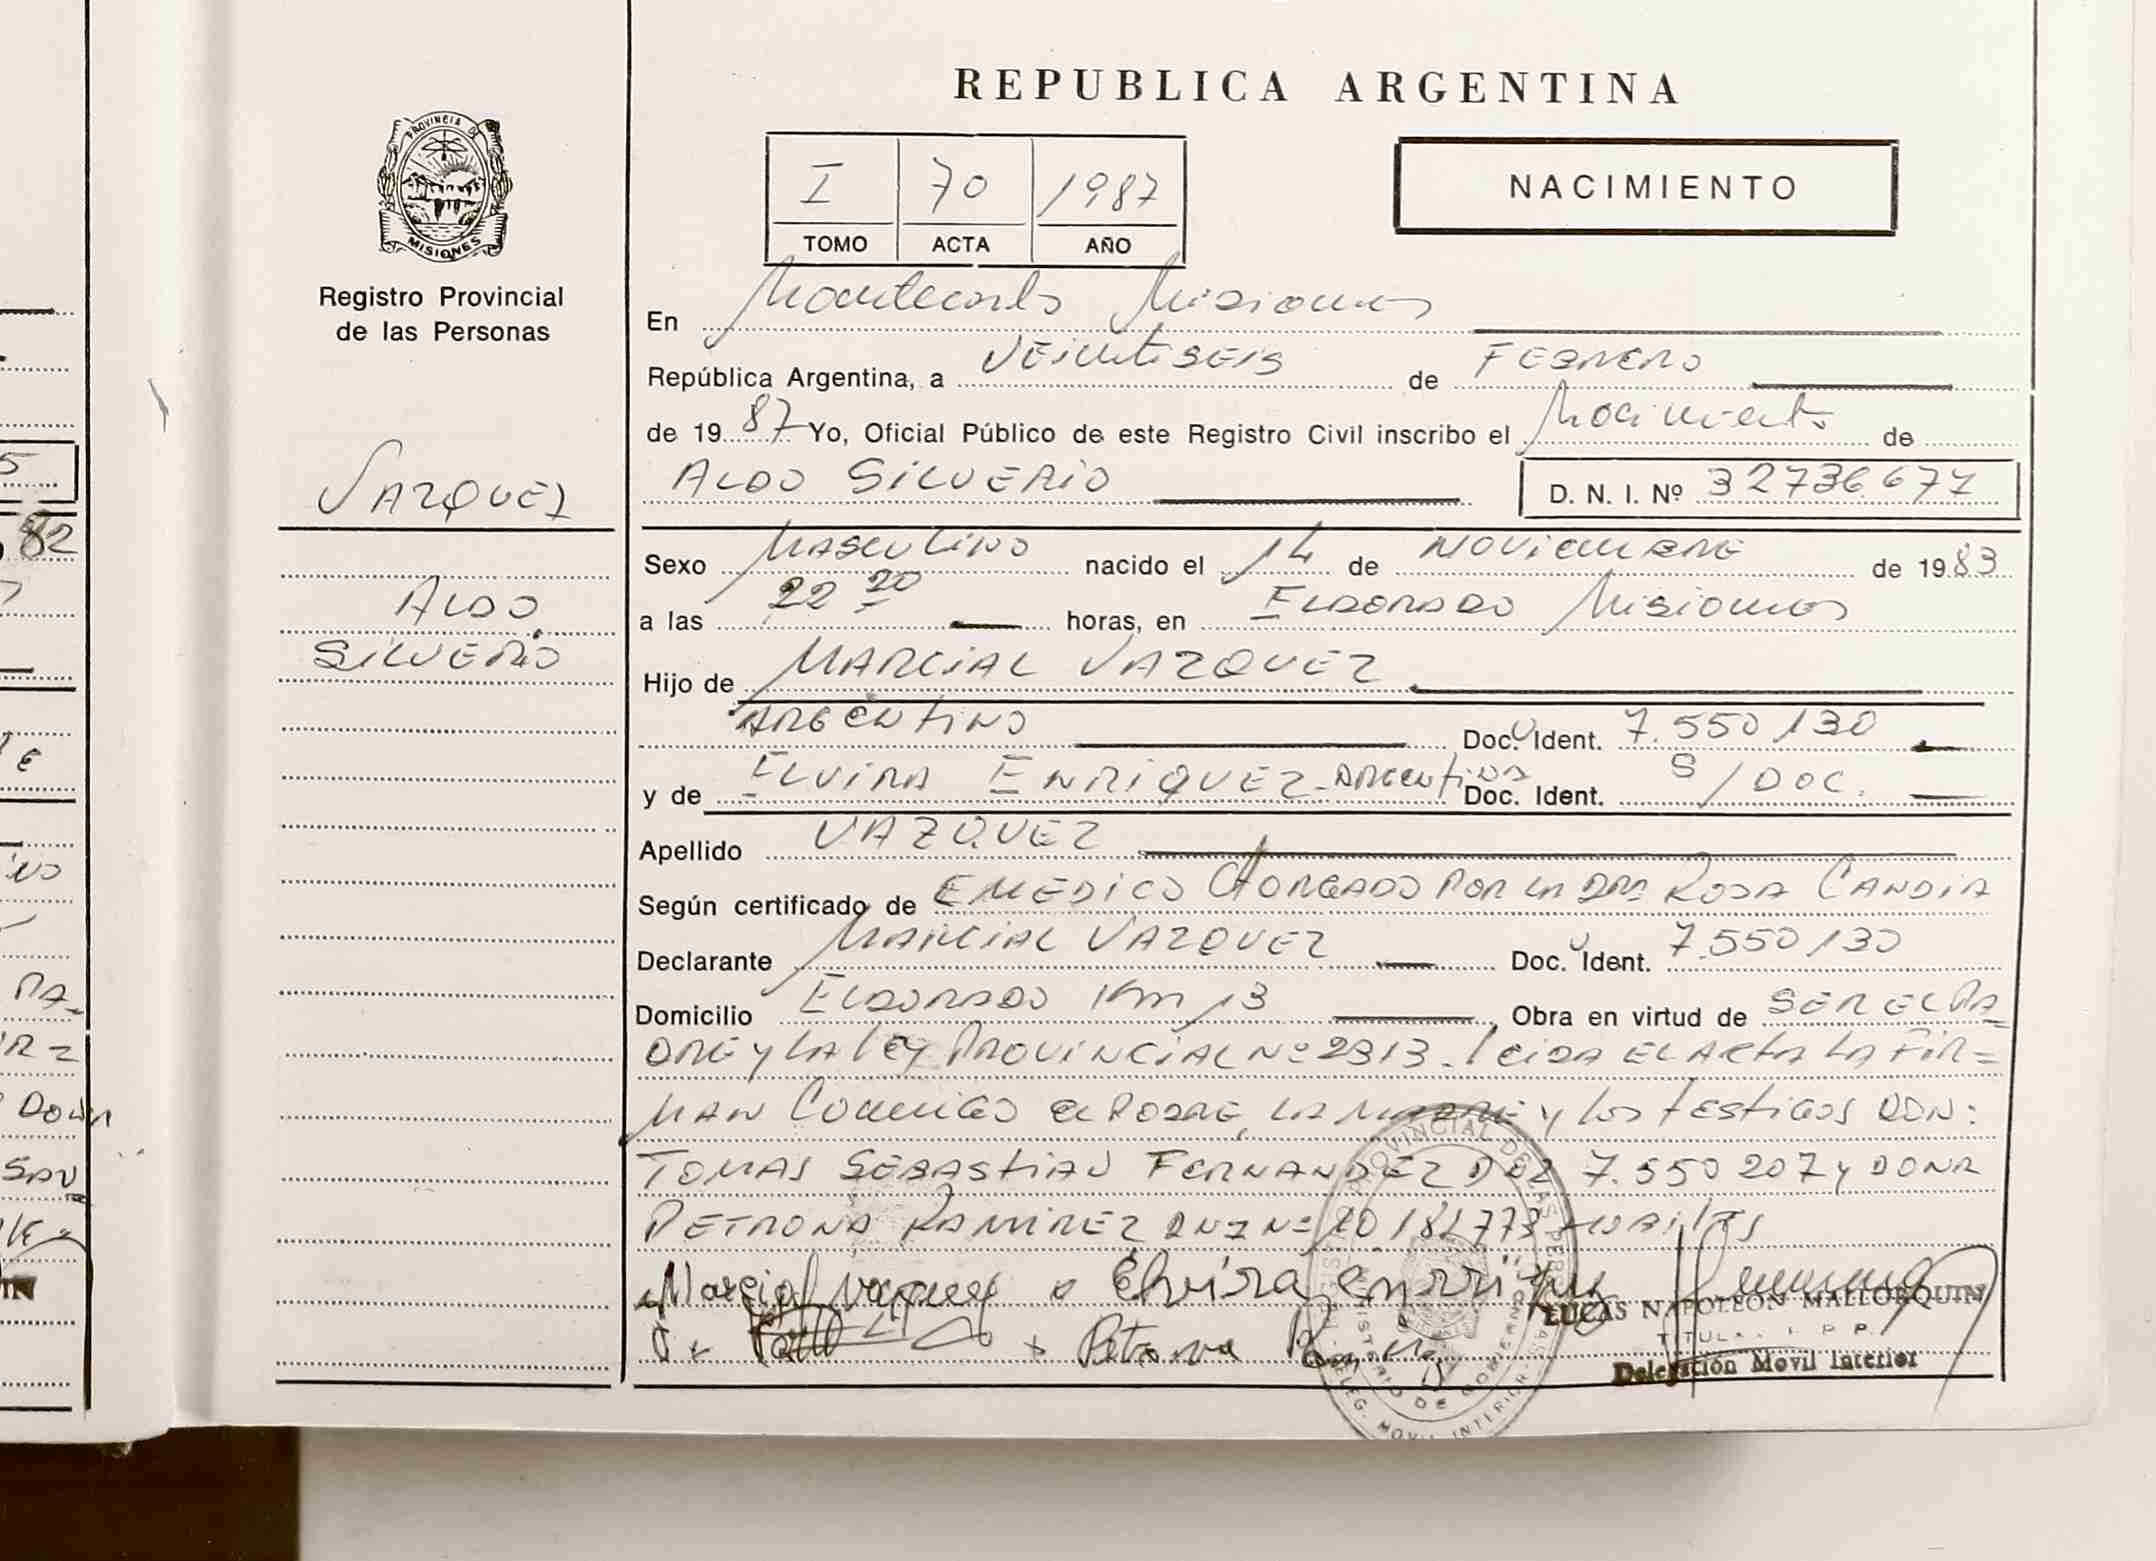 REPUBLICA ARGENTINA
PROVINCIA DE
MISIONES
Registro Provincial
de las Personas
I 70 1987
TOMO ACTA AÑO
NACIMIENTO
En Montecarlo Misiones
República Argentina, a VEINTISEIS de FEBRERO
de 1987 Yo, Oficial Público de este Registro Civil inscribo el Nacimiento de
ALDO SILVERIO D. N. I. Nº 32736677
VAZQUEZ
ALDO
SILVERIO
Sexo MASCULINO nacido el 14 de NOVIEMBRE de 1983
a las 22 20 horas, en ELDORADO Misiones
Hijo de MARCIAL VAZQUEZ
ARGENTINO Doc. Ident. 7.550130
y de ELVIRA ENRIQUEZ - ARGENTINA Doc. Ident. S/DOC.
Apellido VAZQUEZ
Según certificado de MEDICO OTORGADO POR LA DRA ROSA CANDIA
Declarante MARCIAL VAZQUEZ Doc. Ident. 7.550130
Domicilio ELDORADO Km 13 Obra en virtud de SER EL PA-
DRE y LA ley PROVINCIAL Nº 2313. leida EL ACTA LA FIR=
MAN Conmigo el PADRE, LA MADRE y los testigos DON:
TOMAS SEBASTIAN FERNANDEZ DNI 7.550207 y DOÑA
PETRONA RAMIREZ DNI Nº 10.182773
Marcial Vazquez Elvira enrriquez
Petrona
LUCAS NAPOLEON MALLORQUIN
TITULAR R. P. P.
Delegación Movil Interior
REGISTRO PROVINCIAL DE LAS PERSONAS
MINISTERIO DE GOBIERNO
DELEG. MOVIL INTERIOR